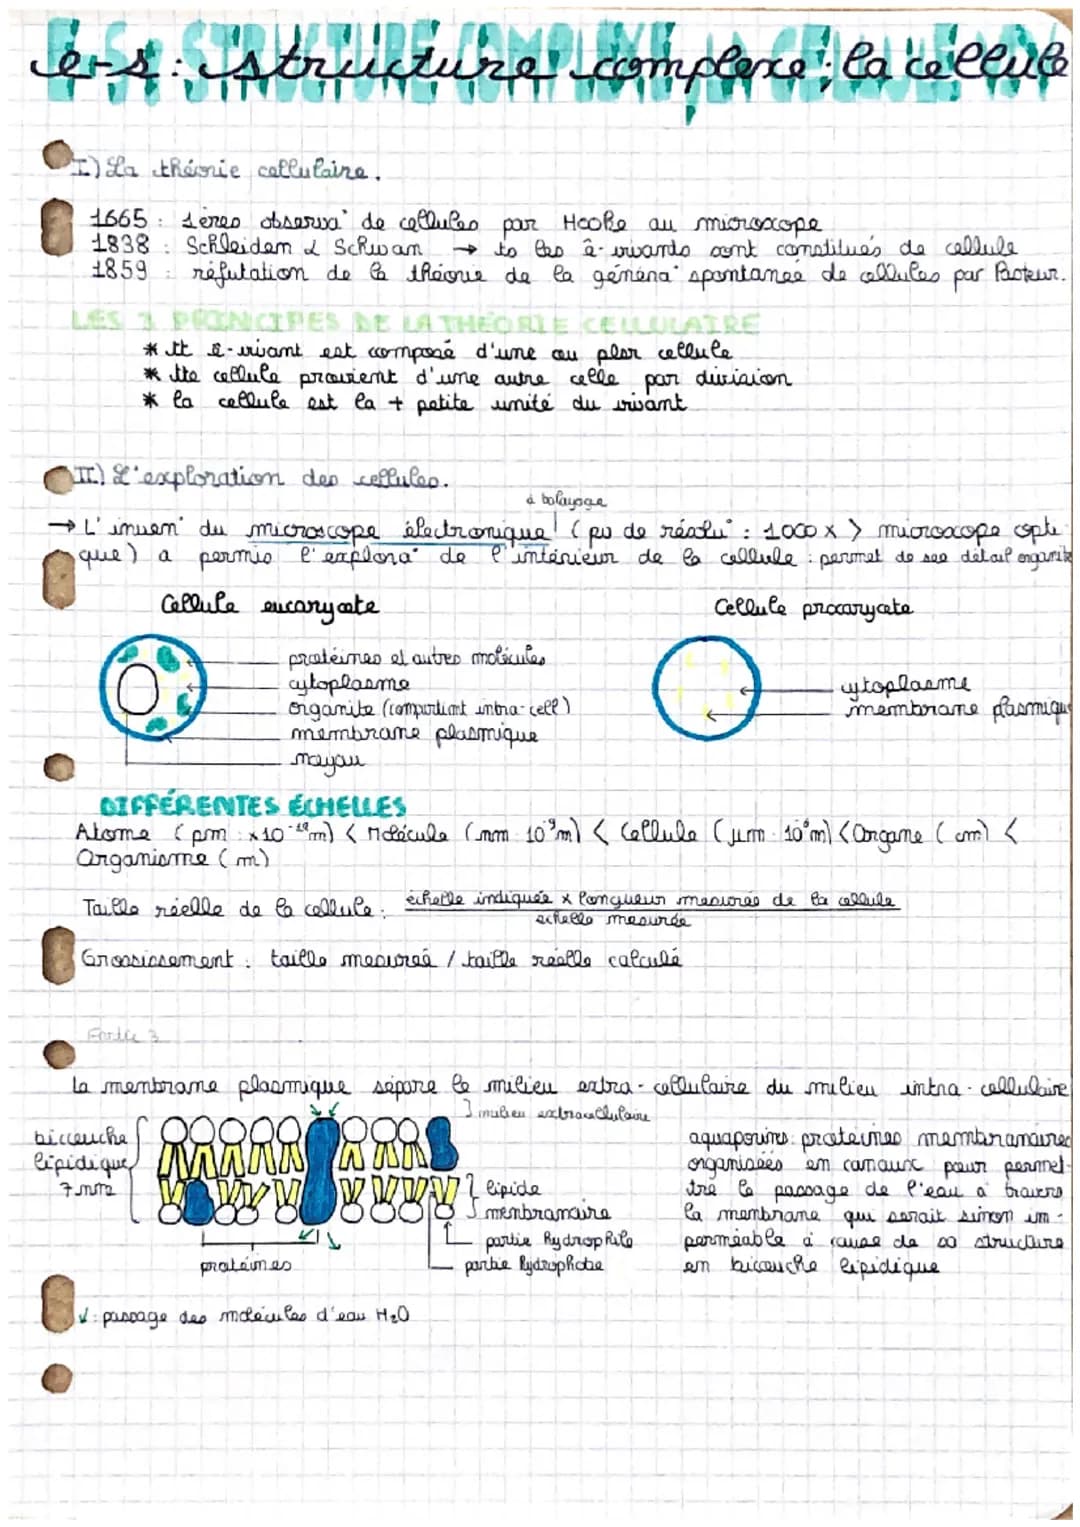 e-s : structure complexe ; la cellule
I) La théorie cellulaire.
1665 : 1ères observa° de cellules par Hooke au microscope
1838 : Schleidem & Schwan → ts les ê-vivants sont constitués de cellule
1859 : réfutation de la théorie de la généra° spontanée de cellules par Pasteur.
LES 3 PRINCIPES DE LA THÉORIE CELLULAIRE
* tt ê-vivant est composé d'une ou plsr cellule
* tte cellule provient d'une autre celle par division
* la cellule est la + petite unité du vivant
II) L'exploration des cellules.
à balayage
→ L'inven° du microscope électronique (pv de résolu° : 1000 x > microscope opti
que) a permis l'explora° de l'intérieur de la cellule : permet de see détail organite
Cellule eucaryote
Cellule procaryote
protéines et autres molécules
cytoplasme
organite (compartimt intra-cell)
membrane plasmique
noyau
cytoplasme
membrane plasmique
DIFFÉRENTES ÉCHELLES
Atome (pm : x10⁻¹²m) < Molécule (nm 10⁻⁹m) < Cellule (µm 10⁻⁶m) < Organe (cm) <
Organisme (m)
Taille réelle de la cellule : échelle indiquée x longueur mesurée de la cellule
échelle mesurée
Grossissement : taille mesurée / taille réelle calculé
Partie 3
La membrane plasmique sépare le milieu extra-cellulaire du milieu intra-cellulaire
] milieu extracellulaire
bicouche
lipidique
7 nm
lipide
membranaire
partie hydrophile
partie hydrophobe
protéines
aquaporines : protéines membranaires
organisées en canaux pour permet-
tre le passage de l'eau à travers
la membrane qui serait sinon im-
perméable à cause de sa structure
en bicouche lipidique
↓ : passage des molécules d'eau H₂O